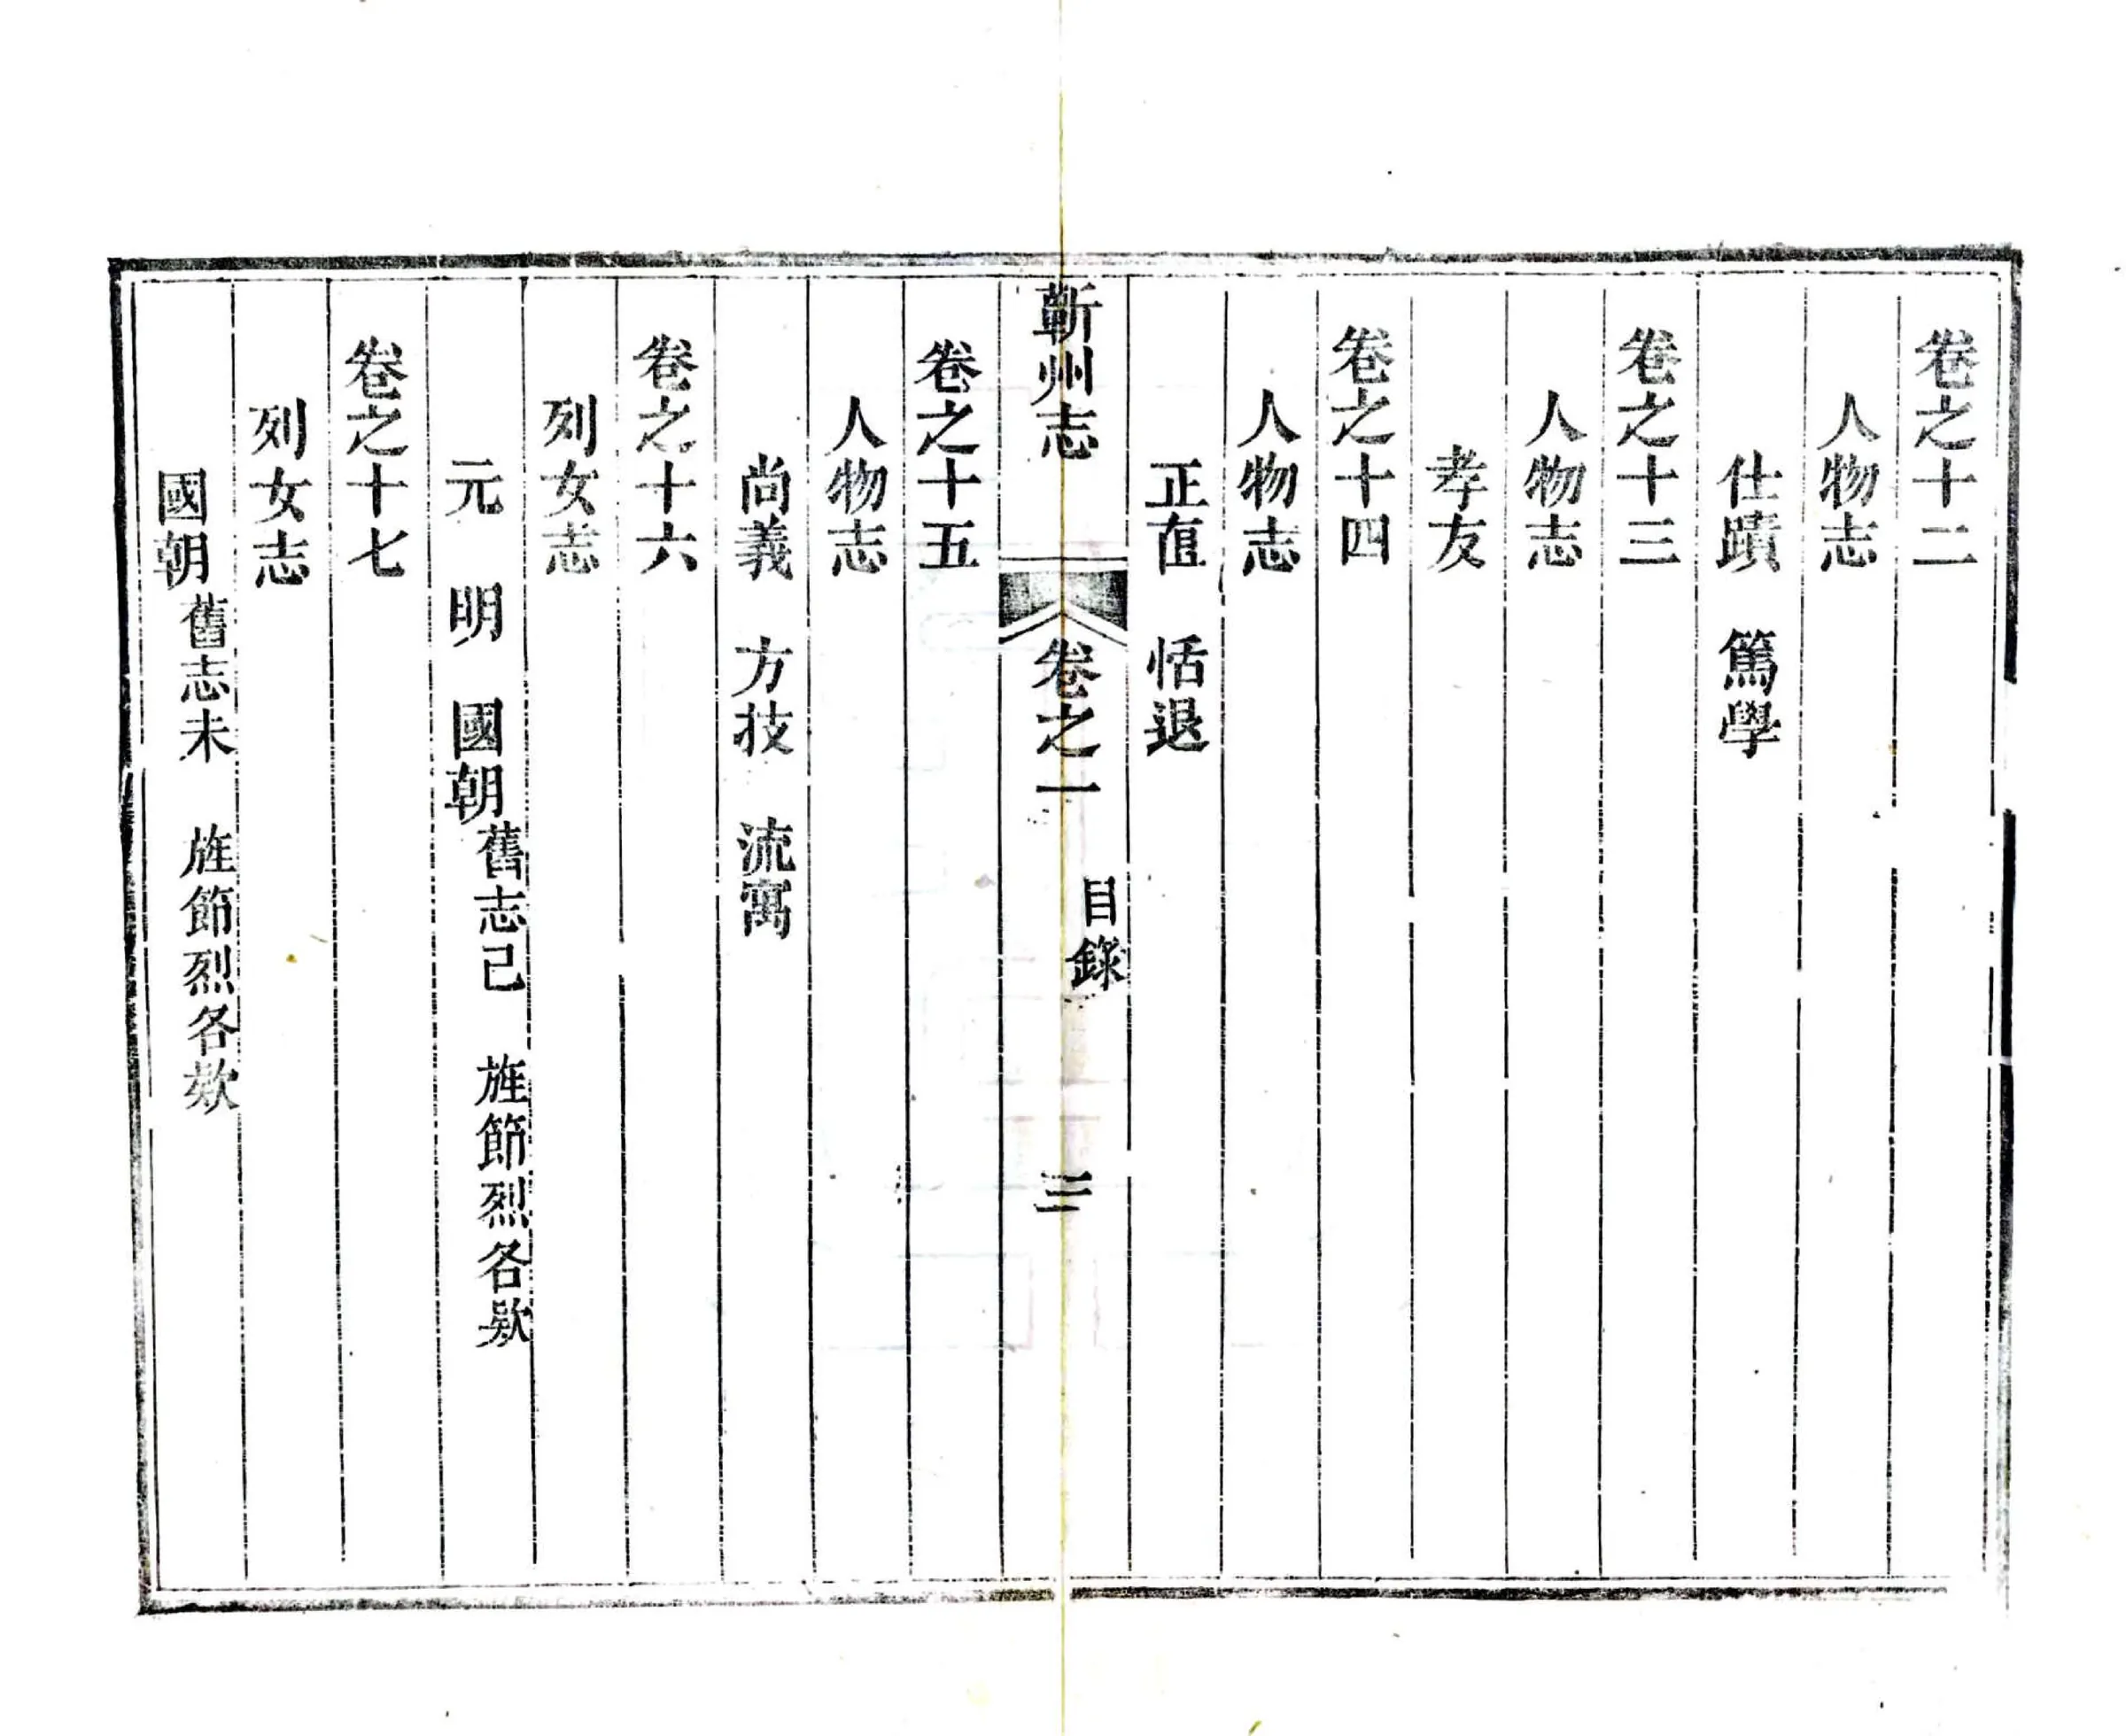 卷之十二
人物志
仕蹟　篤學
卷之十三
人物志
孝友
卷之十四
人物志
正直　恬退
蘄州志　卷之一　目錄　三
卷之十五
人物志
尚義　方技　流寓
卷之十六
列女志
元　明　國朝舊志已　旌節烈各欵
卷之十七
列女志
國朝舊志未　旌節烈各欵